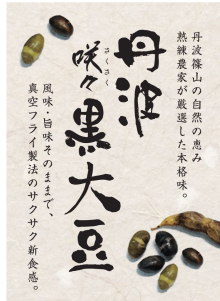 丹波篠山の自然の恵み
熟練農家が厳選した本格味。
丹波
咲々黒大豆
さくさく
風味・旨味そのままで、
真空フライ製法のサクサク新食感。